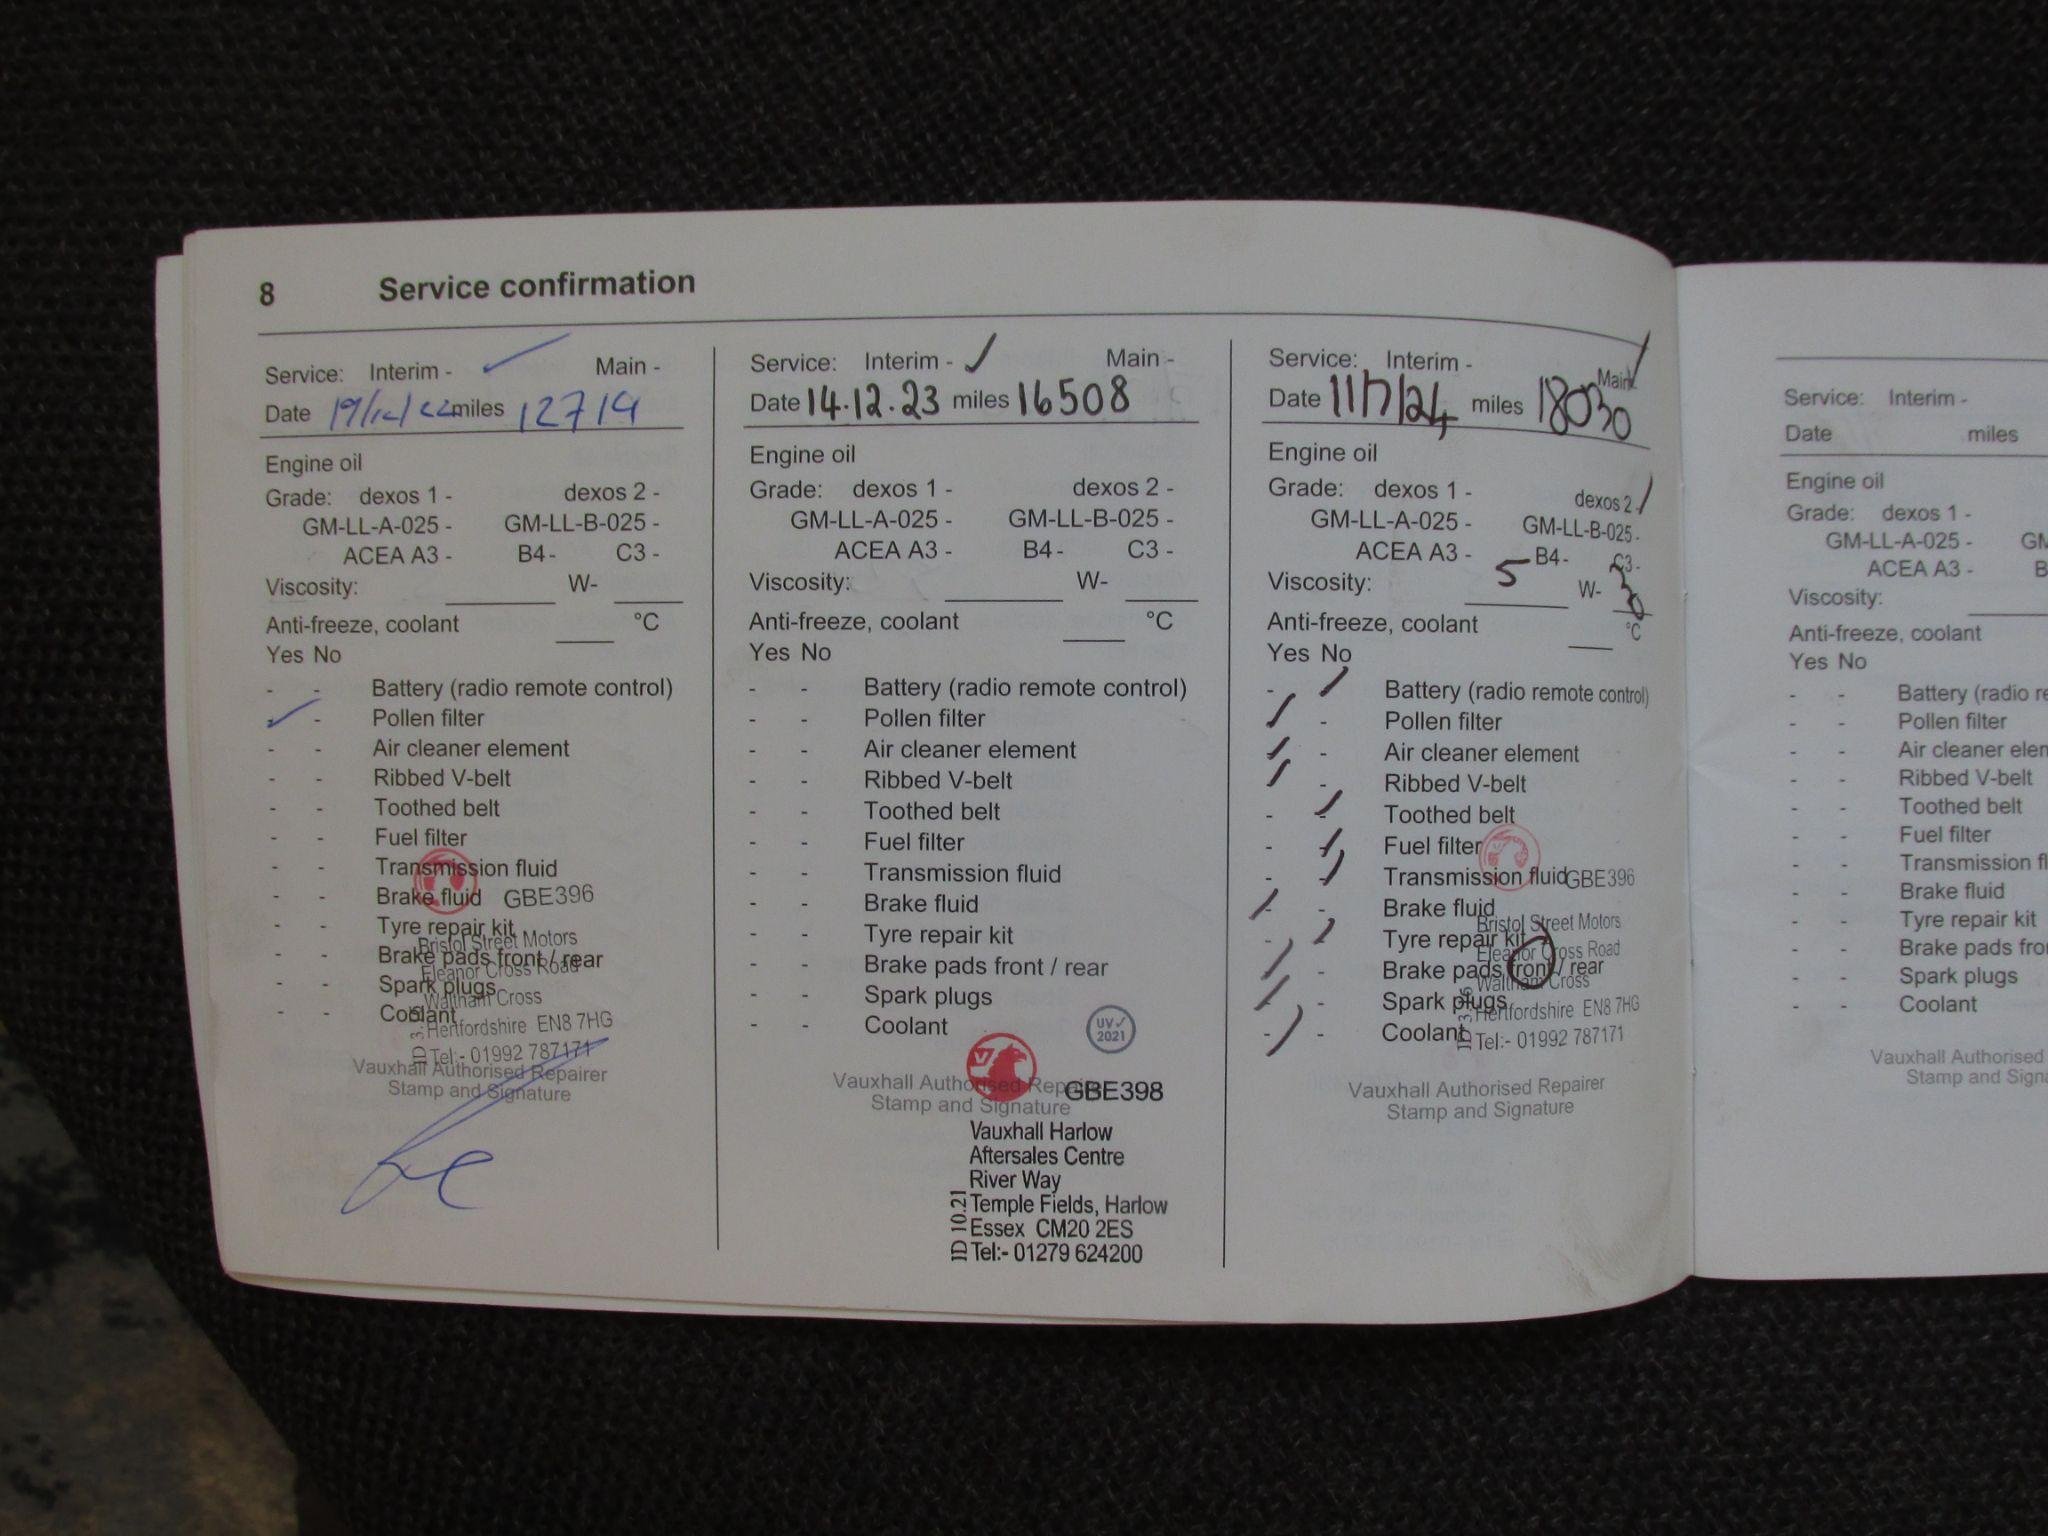 8 Service confirmation
Service: Interim - ✓ Main -
Date 19/12/22 miles 12719
Engine oil
Grade: dexos 1 - dexos 2 -
GM-LL-A-025 - GM-LL-B-025 -
ACEA A3 - B4 - C3 -
Viscosity: W-
Anti-freeze, coolant °C
Yes No
- - Battery (radio remote control)
✓ - Pollen filter
- - Air cleaner element
- - Ribbed V-belt
- - Toothed belt
- - Fuel filter
- - Transmission fluid
- - Brake fluid GBE396
- - Tyre repair kit
Bristol Street Motors
- - Brake pads front / rear
Eleanor Cross Road
- - Spark plugs
Waltham Cross
- - Coolant
Hertfordshire EN8 7HG
Tel:- 01992 787171
Vauxhall Authorised Repairer
Stamp and Signature
Service: Interim - ✓ Main -
Date 14.12.23 miles 16508
Engine oil
Grade: dexos 1 - dexos 2 -
GM-LL-A-025 - GM-LL-B-025 -
ACEA A3 - B4 - C3 -
Viscosity: W-
Anti-freeze, coolant °C
Yes No
- - Battery (radio remote control)
- - Pollen filter
- - Air cleaner element
- - Ribbed V-belt
- - Toothed belt
- - Fuel filter
- - Transmission fluid
- - Brake fluid
- - Tyre repair kit
- - Brake pads front / rear
- - Spark plugs
- - Coolant
UV ✓
2021
Vauxhall Authorised Repairer
GBE398
Stamp and Signature
Vauxhall Harlow
Aftersales Centre
River Way
Temple Fields, Harlow
Essex CM20 2ES
Tel:- 01279 624200
ID 10.21
Service: Interim - Main - ✓
Date 11/7/24 miles 18030
Engine oil
Grade: dexos 1 - dexos 2 - /
GM-LL-A-025 - GM-LL-B-025 -
ACEA A3 - B4 - C3 -
Viscosity: 5 W- 30
Anti-freeze, coolant °C
Yes No
- / Battery (radio remote control)
/ - Pollen filter
/ - Air cleaner element
/ - Ribbed V-belt
- / Toothed belt
- / Fuel filter
- / Transmission fluid GBE396
/ - Brake fluid
Bristol Street Motors
- / Tyre repair kit
Eleanor Cross Road
/ - Brake pads front / rear
Waltham Cross
/ - Spark plugs
Hertfordshire EN8 7HG
/ - Coolant
Tel:- 01992 787171
Vauxhall Authorised Repairer
Stamp and Signature
Service: Interim -
Date miles
Engine oil
Grade: dexos 1 -
GM-LL-A-025 -
ACEA A3 -
Viscosity:
Anti-freeze, coolant
Yes No
- - Battery (radio
- - Pollen filter
- - Air cleaner
- - Ribbed V-belt
- - Toothed belt
- - Fuel filter
- - Transmission
- - Brake fluid
- - Tyre repair kit
- - Brake pads
- - Spark plugs
- - Coolant
Vauxhall Authorised
Stamp and